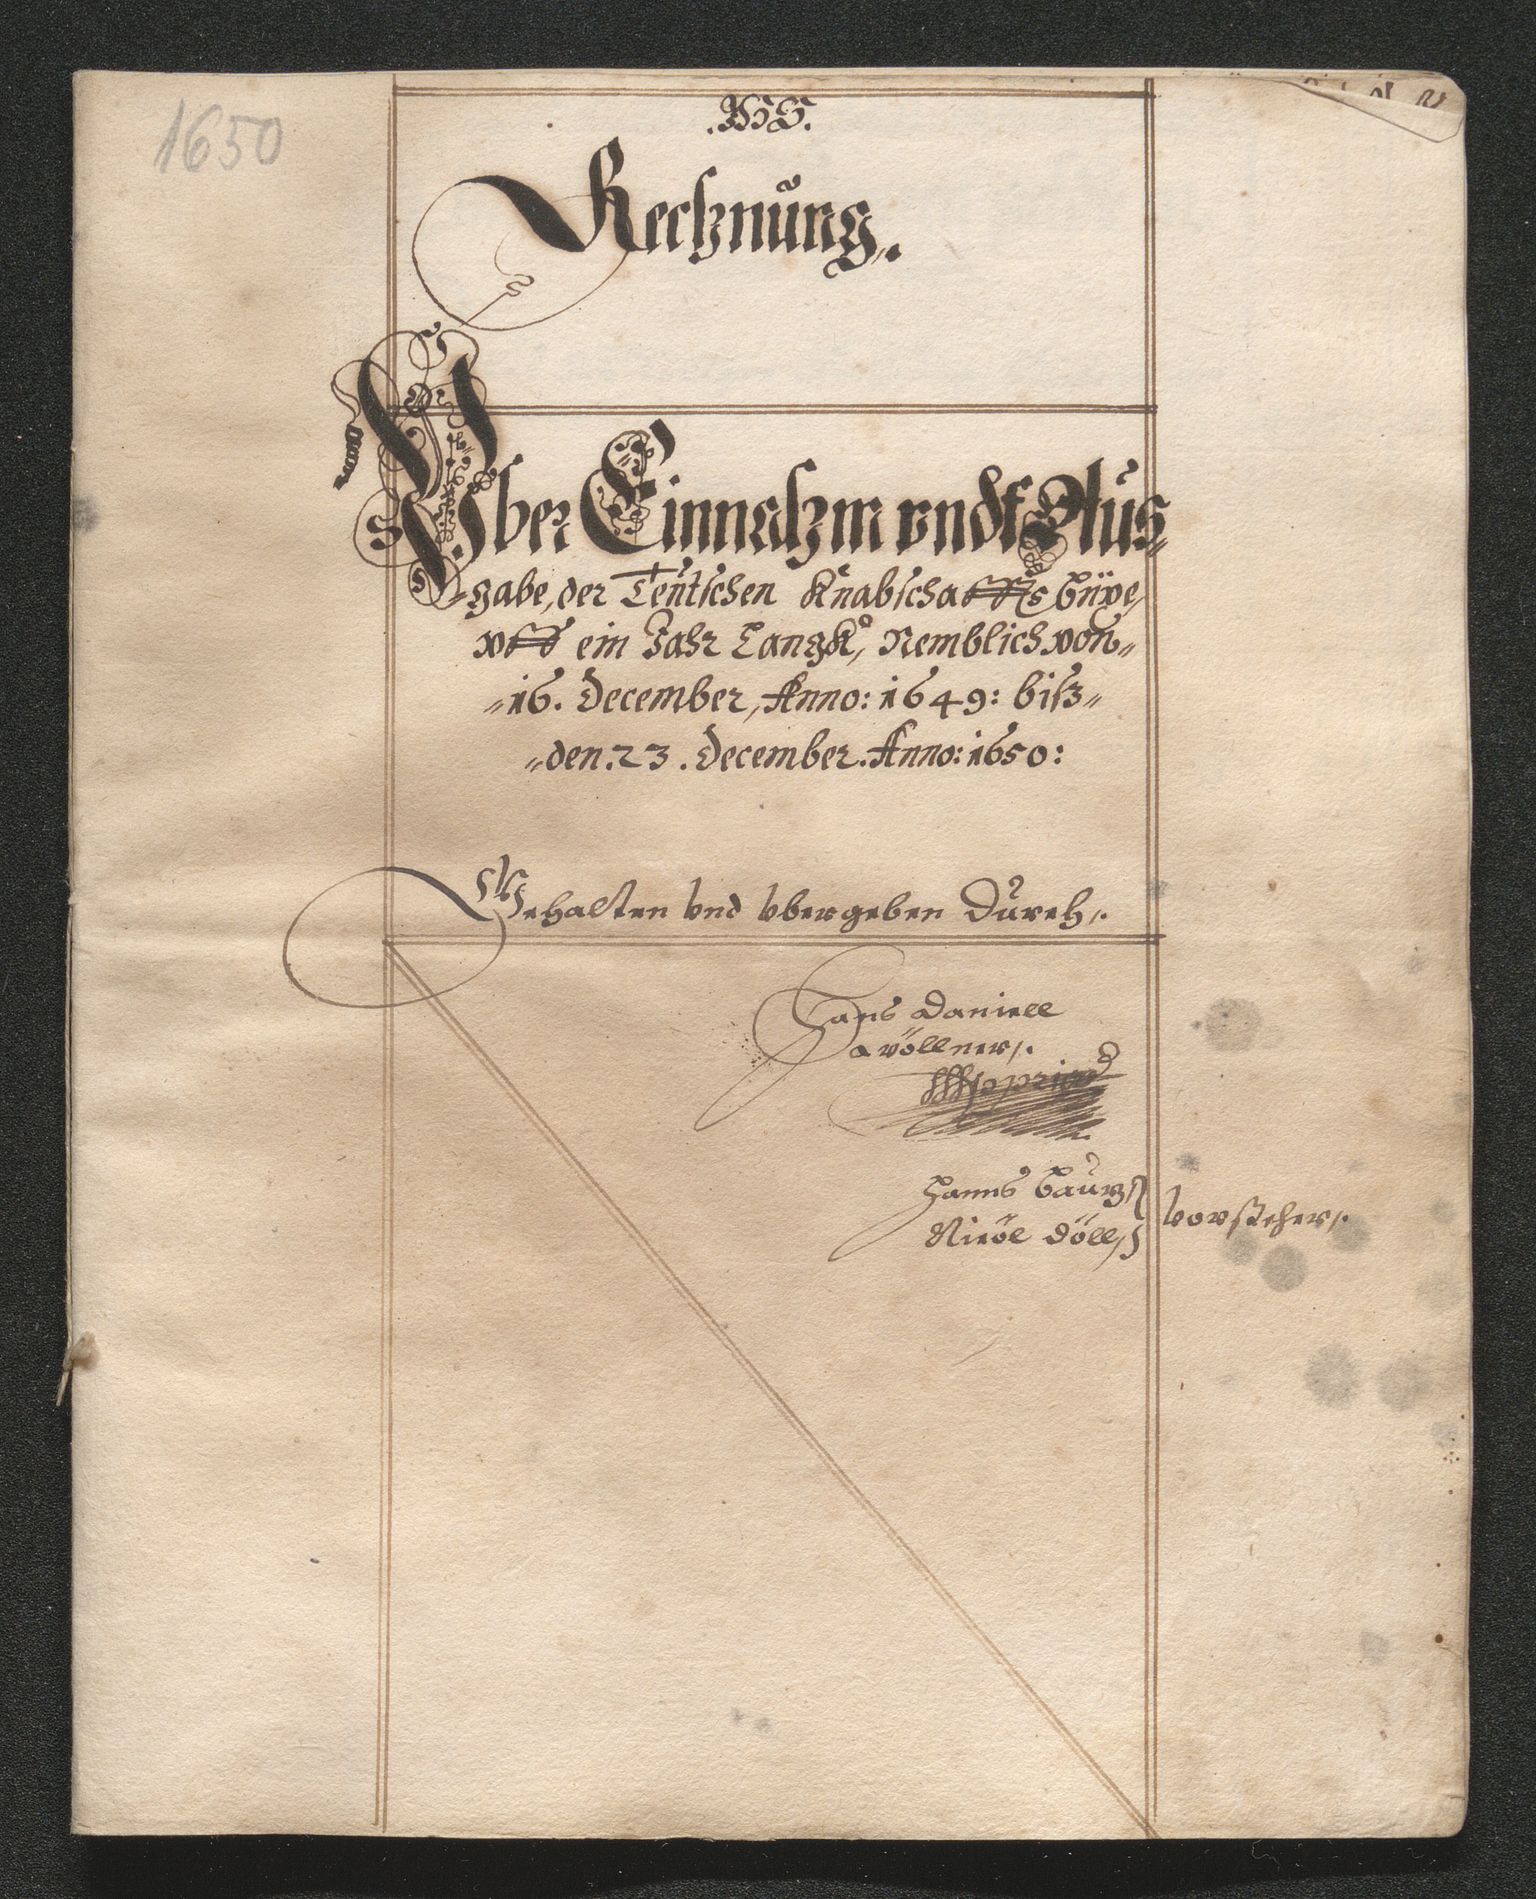 1650
Rechnung,.
Vber Einnahm vndt Aus=
=gabe, der Teutschen Knabschaffts Büxe,
vff ein Jahr Langk, Nemblich von
16. December, Anno: 1649: bisz
den. 23. December. Anno: 1650:
Gehalten vnd vbergeben Durch,.
Hans Daniell
Hanns
Döll
vorsteher,.